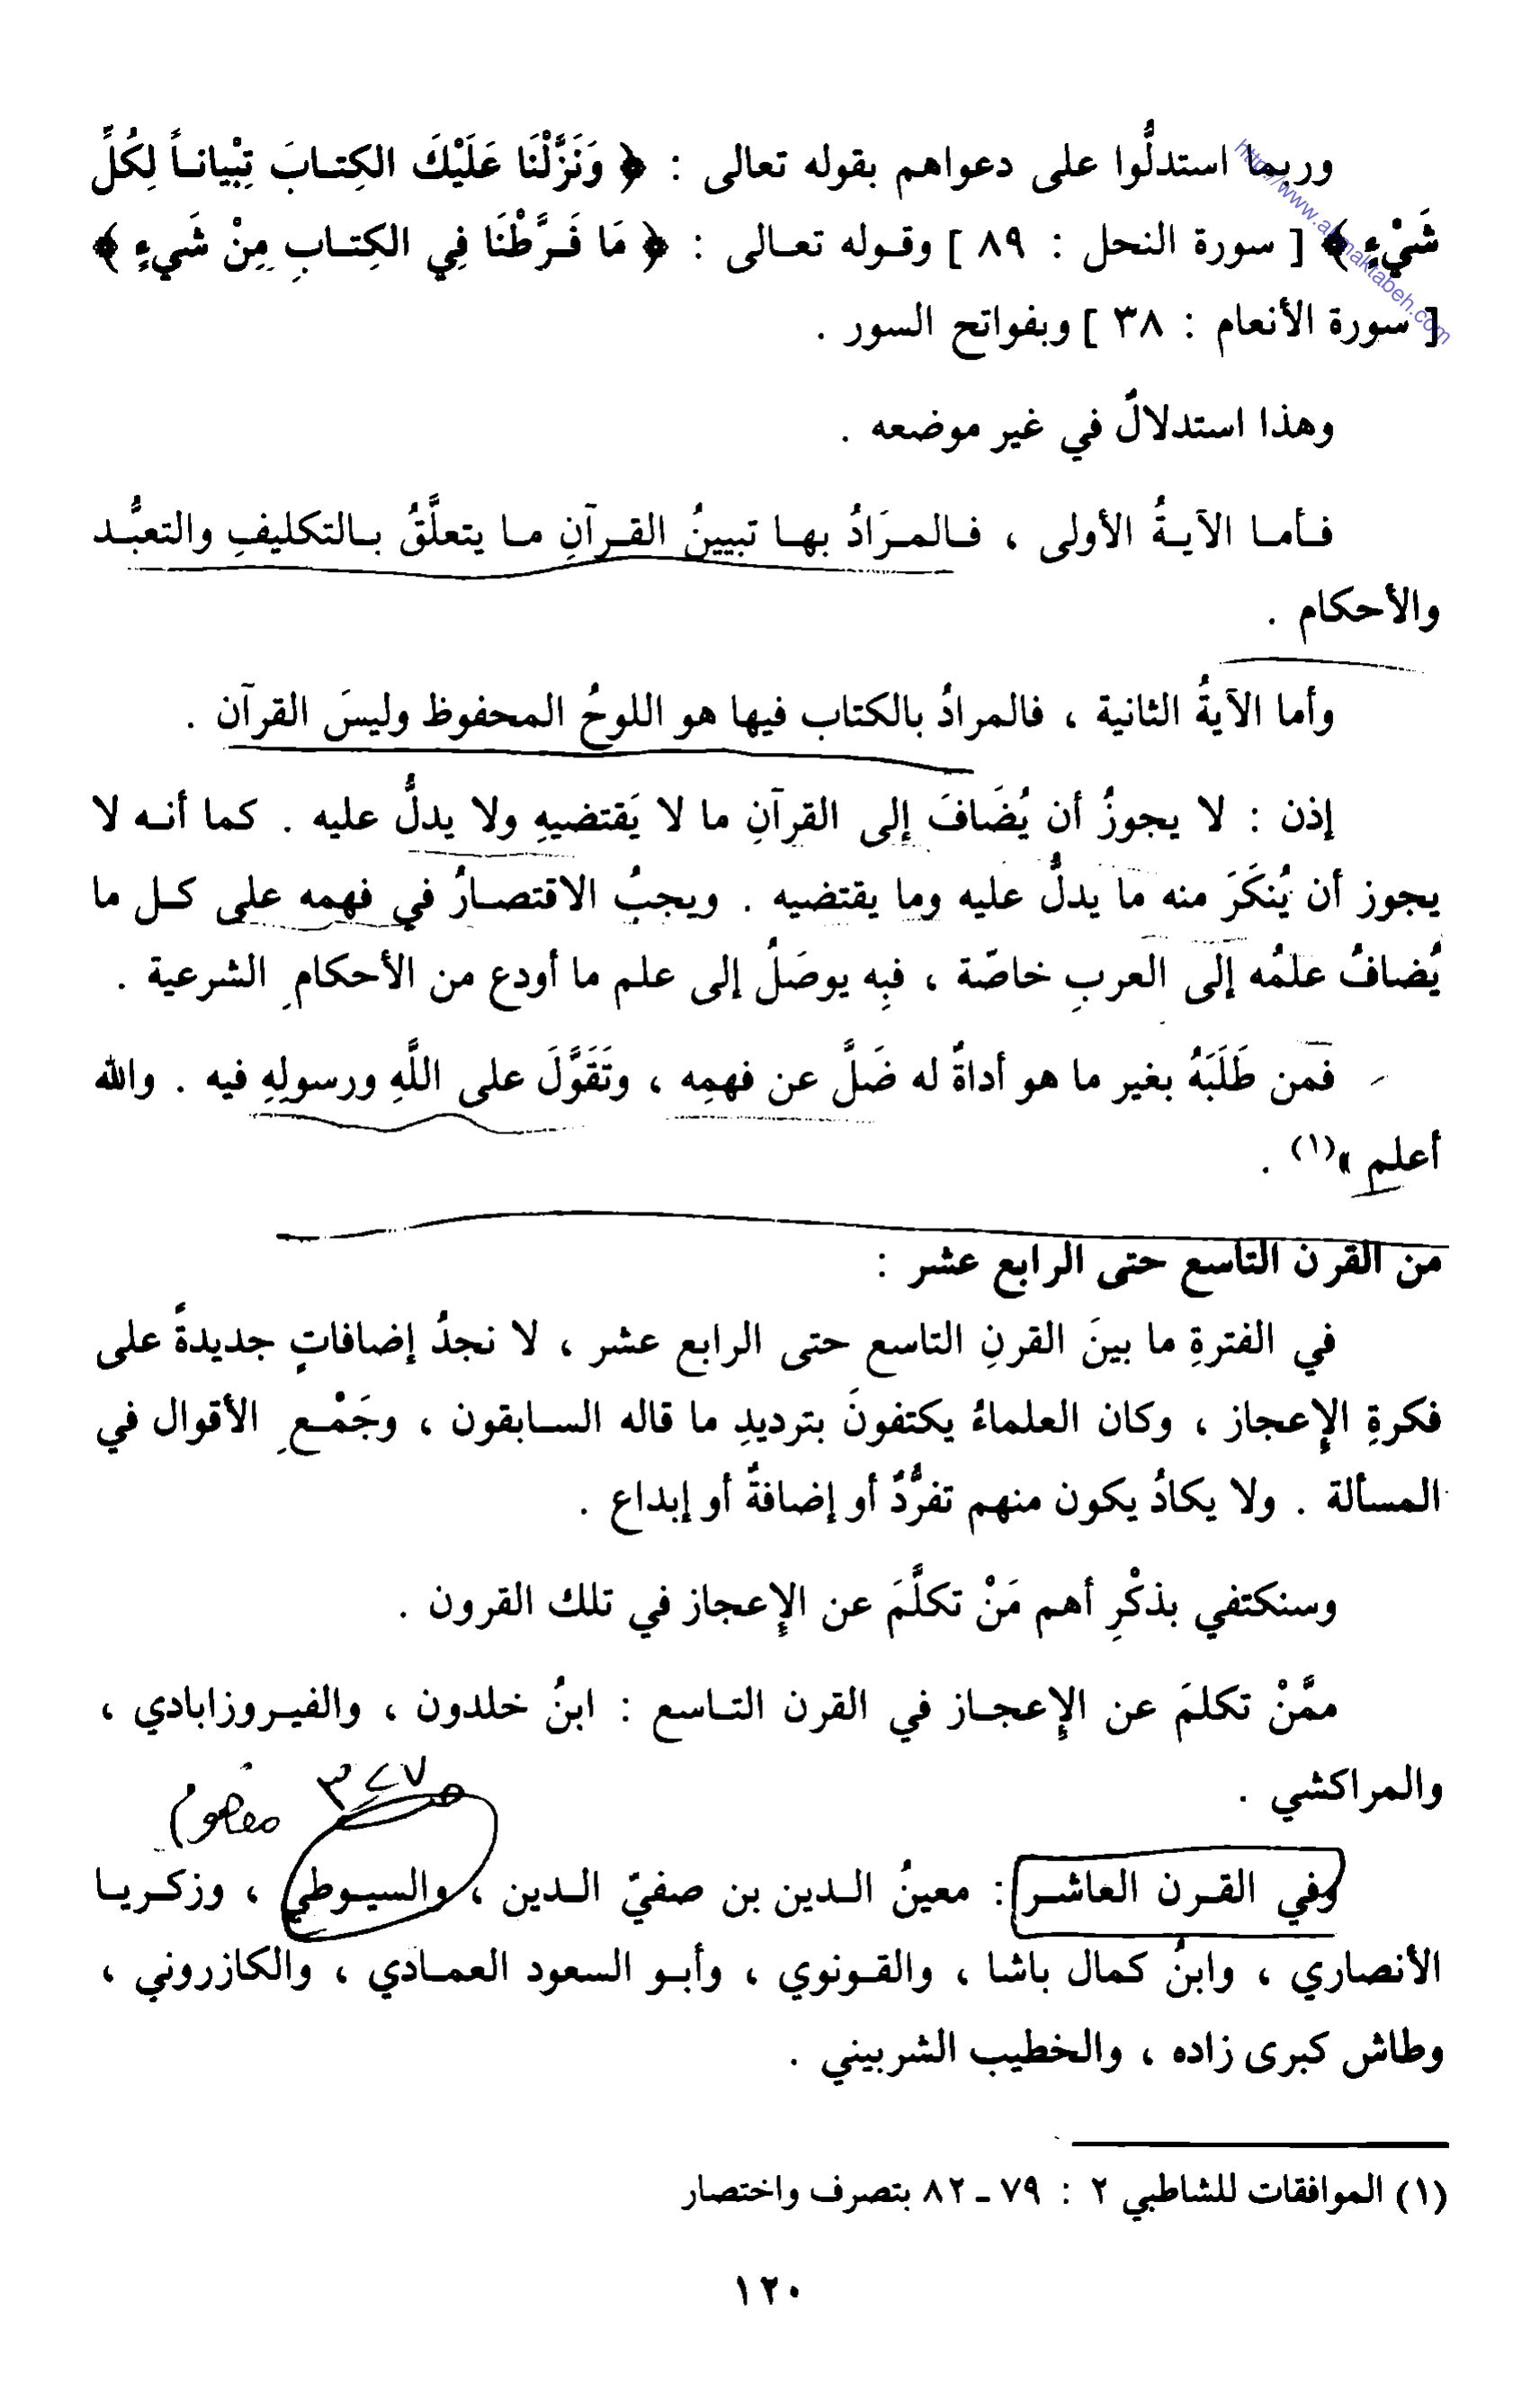 وربما استدلُّوا على دعواهم بقوله تعالى : ﴿ وَنَزَّلْنَا عَلَيْكَ الكِتـابَ تِبْيانـاً لِكُلِّ
شَيْءٍ ﴾ [ سورة النحل : ٨٩ ] وقـوله تعـالى : ﴿ مَا فَـرَّطْنَا فِي الكِتـابِ مِنْ شَيءٍ ﴾
[ سورة الأنعام : ٣٨ ] وبفواتح السور .
http://www.almaktabeh.com
وهذا استدلالٌ في غير موضعه .
فـأمـا الآيـةُ الأولى ، فـالمـرَادُ بهـا تبيينُ القـرآنِ مـا يتعلَّقُ بـالتكليفِ والتعبُّـد
والأحكام .
وأما الآيةُ الثانية ، فالمرادُ بالكتاب فيها هو اللوحُ المحفوظ وليسَ القرآن .
إذن : لا يجوزُ أن يُضَافَ إلى القرآنِ ما لا يَقتضيهِ ولا يدلُّ عليه . كما أنـه لا
يجوز أن يُنكَرَ منه ما يدلُّ عليه وما يقتضيه . ويجبُ الاقتصـارُ في فهمه على كـل ما
يُضافُ علمُه إلى العربِ خاصّة ، فبِه يوصَلُ إلى علم ما أودع من الأحكامِ الشرعية .
فمن طَلَبَهُ بغير ما هو أداةٌ له ضَلَّ عن فهمِه ، وتَقَوَّلَ على اللَّهِ ورسولِهِ فيه . والله
أعلم »(١) .
من القرن التاسع حتى الرابع عشر :
في الفترةِ ما بينَ القرنِ التاسع حتى الرابع عشر ، لا نجدُ إضافاتٍ جديدةً على
فكرةِ الإعجاز ، وكان العلماءُ يكتفونَ بترديدِ ما قاله السـابقون ، وجَمْـعِ الأقوال في
المسألة . ولا يكادُ يكون منهم تفرُّدٌ أو إضافةٌ أو إبداع .
وسنكتفي بذكْرِ أهم مَنْ تكلَّمَ عن الإعجاز في تلك القرون .
ممَّنْ تكلمَ عن الإعجـاز في القرن التـاسع : ابنُ خلدون ، والفيـروزابادي ،
والمراكشي .
وفي القـرن العاشـر : معينُ الـدين بن صفيّ الـدين ، والسيـوطي ، وزكـريـا
الأنصاري ، وابنُ كمال باشا ، والقـونوي ، وأبـو السعود العمـادي ، والكازروني ،
وطاش كبرى زاده ، والخطيب الشربيني .
(١) الموافقات للشاطبي ٢ : ٧٩ ـ ٨٢ بتصرف واختصار
١٢٠